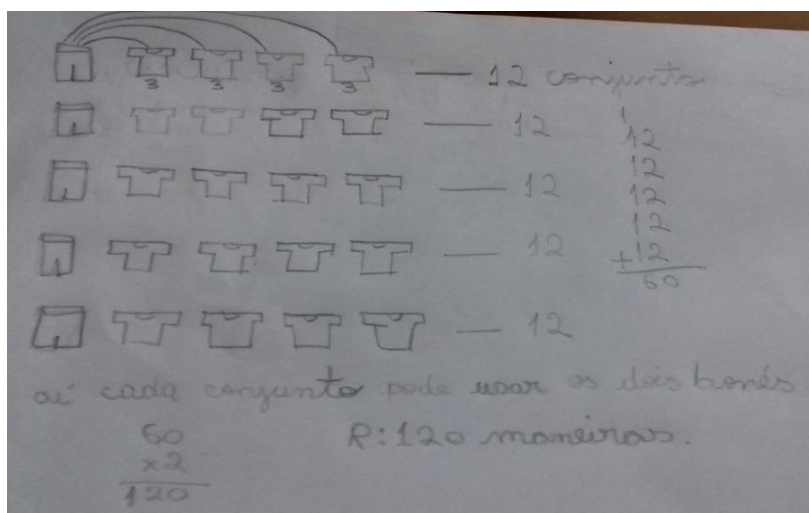 3 3 3 3 — 12 conjunto
— 12
— 12
— 12
— 12
1
12
12
12
12
+12
60
aí cada conjunto pode usar os dois bonés
60
x2
120
R: 120 maneiras.